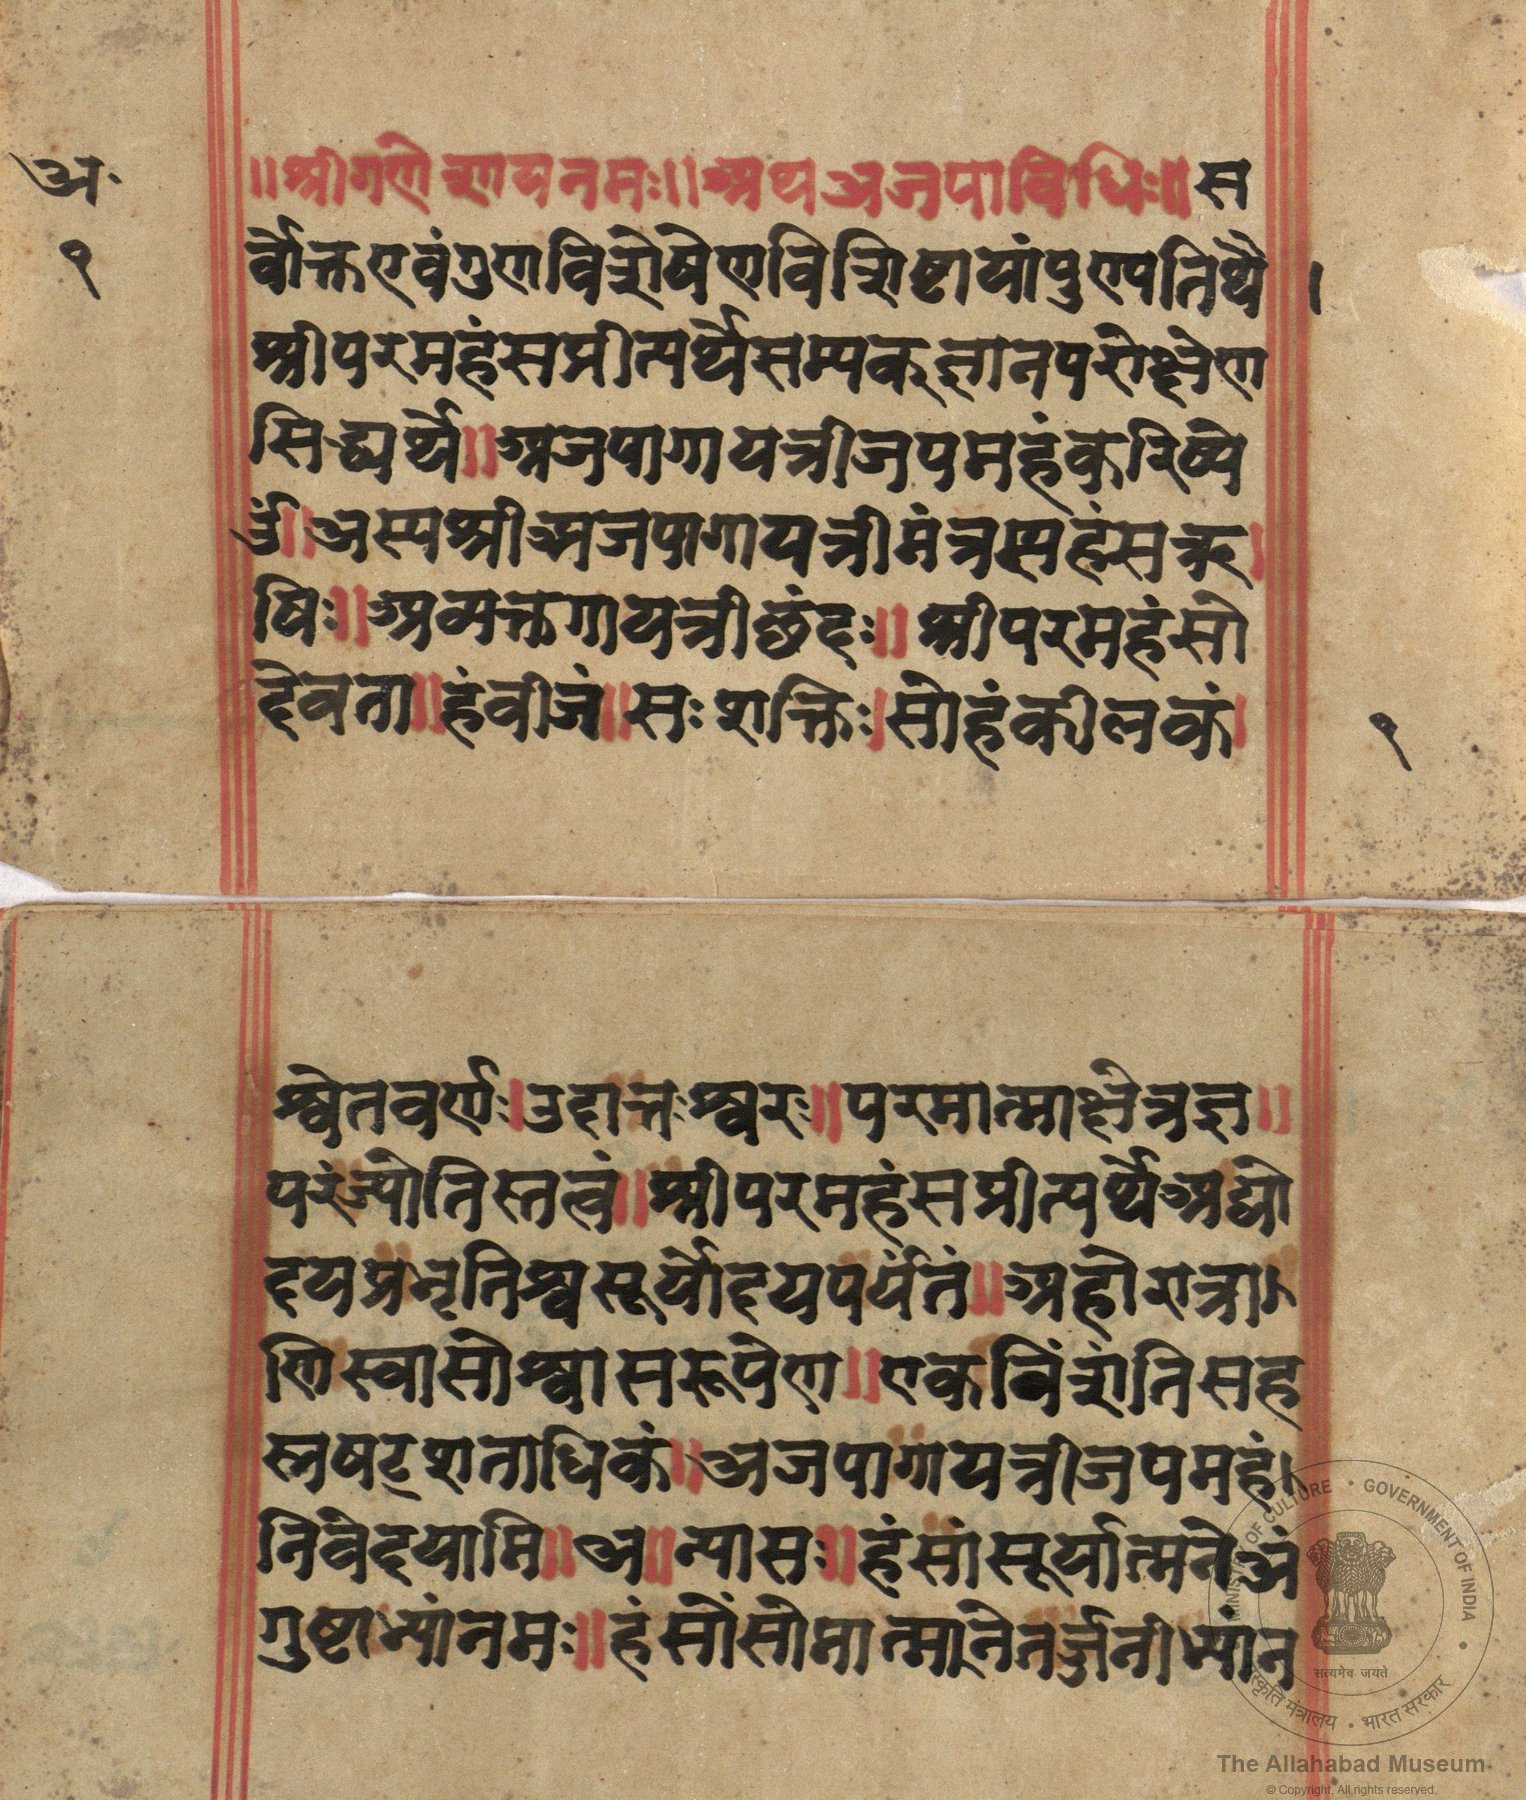 अ॰
१
॥श्रीगणेशायनमः॥अथअजपाविधिः॥स
र्वोक्तएवंगुणविशेषेणविशिष्टायांपुण्यतिथै।
श्रीपरमहंसप्रीत्यर्थेसम्यक्ज्ञानपरोक्ष्नेण
सिद्ध्यर्थे॥अजपागायत्रीजपमहंकरिष्ये
उँ॥अस्यश्रीअजपागायत्रीमंत्रस्यहंसऋ।
षिः॥अव्यक्तगायत्रीछंदः॥श्रीपरमहंसो
देवता॥हंवीजं॥सःशक्तिः।सोहंकीलकं।
१
श्वेतवर्णः।उदात्तःश्वरः॥परमात्माक्षेत्रज्ञ॥
परंज्योतिस्तत्वं॥श्रीपरमहंसप्रीत्यर्थेअद्यो
दयप्रभृतिश्वसूर्योदयपर्यंतं॥अहोरात्रा।
णिस्वासोश्वासरूपेण॥एकविंशतिसह
स्त्रषट्शताधिकं॥अजपागायत्रीजपमहं।
निवेदयामि॥अ॥न्यासः॥हंसांसूर्यात्मनेअं
गुष्टाभ्यांनमः॥हंसींसोमात्मानेतर्ज्जनीभ्यांन
MINISTRY OF CULTURE • GOVERNMENT OF INDIA
सत्यमेव जयते
संस्कृति मंत्रालय • भारत सरकार
The Allahabad Museum
© Copyright, All rights reserved.